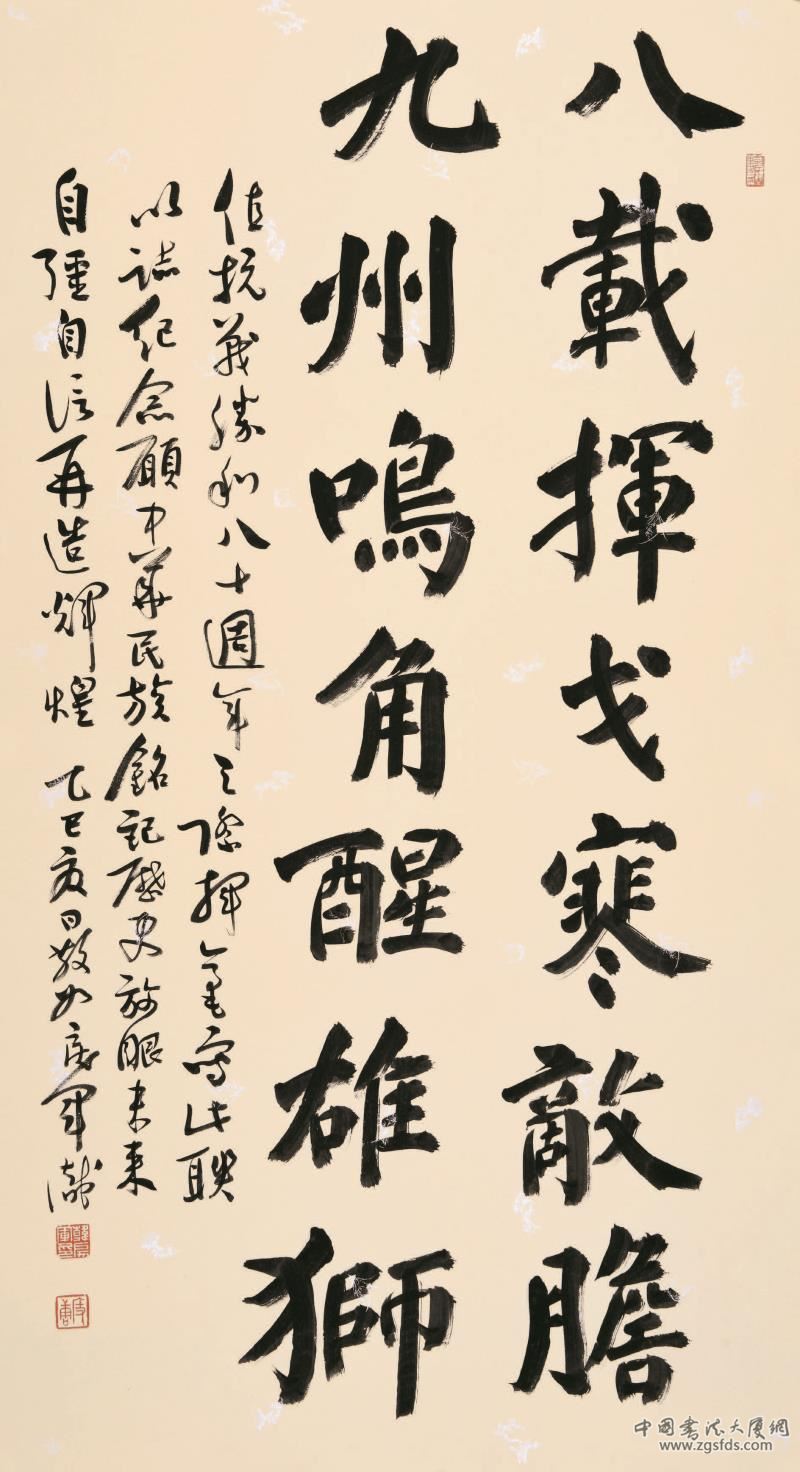 八載揮戈寒敵膽
九州鳴角醒雄獅
值抗戰勝利八十週年之際揮毫寫此聯
以誌紀念願中華民族銘記歷史放眼未來
自強自信再造輝煌 乙巳夏日
中國書法大廈網
www.zgsfds.com